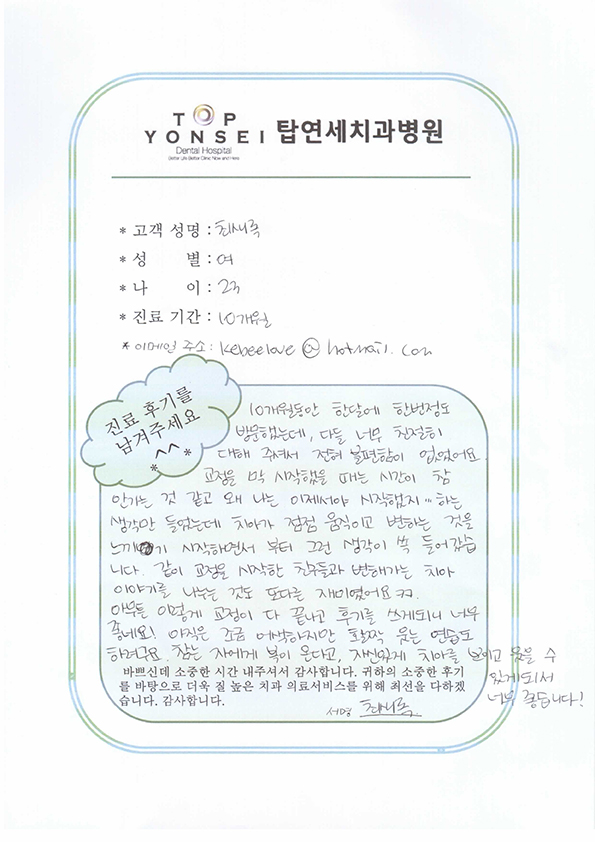 TOP
YONSEI 탑연세치과병원
Dental Hospital
Better Life Better Clinic Now and Here
* 고객 성명 :
* 성 별 : 여
* 나 이 : 23
* 진료 기간 : 10개월
* 이메일 주소 : kebeelove @ hotmail. com
진료 후기를
남겨주세요
*^^*
10개월동안 한달에 한번정도
방문했는데, 다들 너무 친절히
대해 주셔서 전혀 불편함이 없었어요.
교정을 막 시작했을 때는 시간이 참
안가는 것 같고 왜 나는 이제서야 시작했지... 하는
생각만 들었는데 치아가 점점 움직이고 변하는 것을
느끼기 시작하면서 부터 그런 생각이 쏙 들어갔습
니다. 같이 교정을 시작한 친구들과 변해가는 치아
이야기를 나누는 것도 또다른 재미였어요 ㅋㅋ
아무튼 이렇게 교정이 다 끝나고 후기를 쓰게되니 너무
좋네요! 아직은 조금 어색하지만 활짝 웃는 연습도
하려구요. 참는 자에게 복이 온다고, 자신있게 치아를 보이고 웃을 수
있게되서
너무 좋습니다!
바쁘신데 소중한 시간 내주셔서 감사합니다. 귀하의 소중한 후기
를 바탕으로 더욱 질 높은 치과 의료서비스를 위해 최선을 다하겠
습니다. 감사합니다.
서명